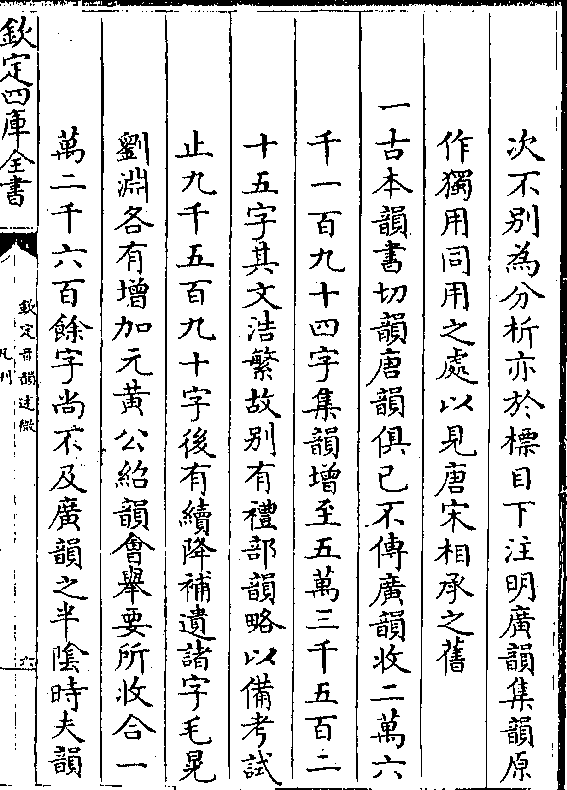 次不别為分析亦於標目下注明廣韻集韻原
作獨用同用之處以見唐宋相承之舊
一古本韻書切韻唐韻俱已不傳廣韻收二萬六
千一百九十四字集韻增至五萬三千五百二
十五字其文浩繁故别有禮部韻略以備考試
止九千五百九十字後有續降補遺諸字毛晃
劉淵各有增加元黄公紹韻會舉要所收合一
萬二千六百餘字尚不及廣韻之半陰時夫韻
欽定四庫全書
欽定音韻述微
凡例
六